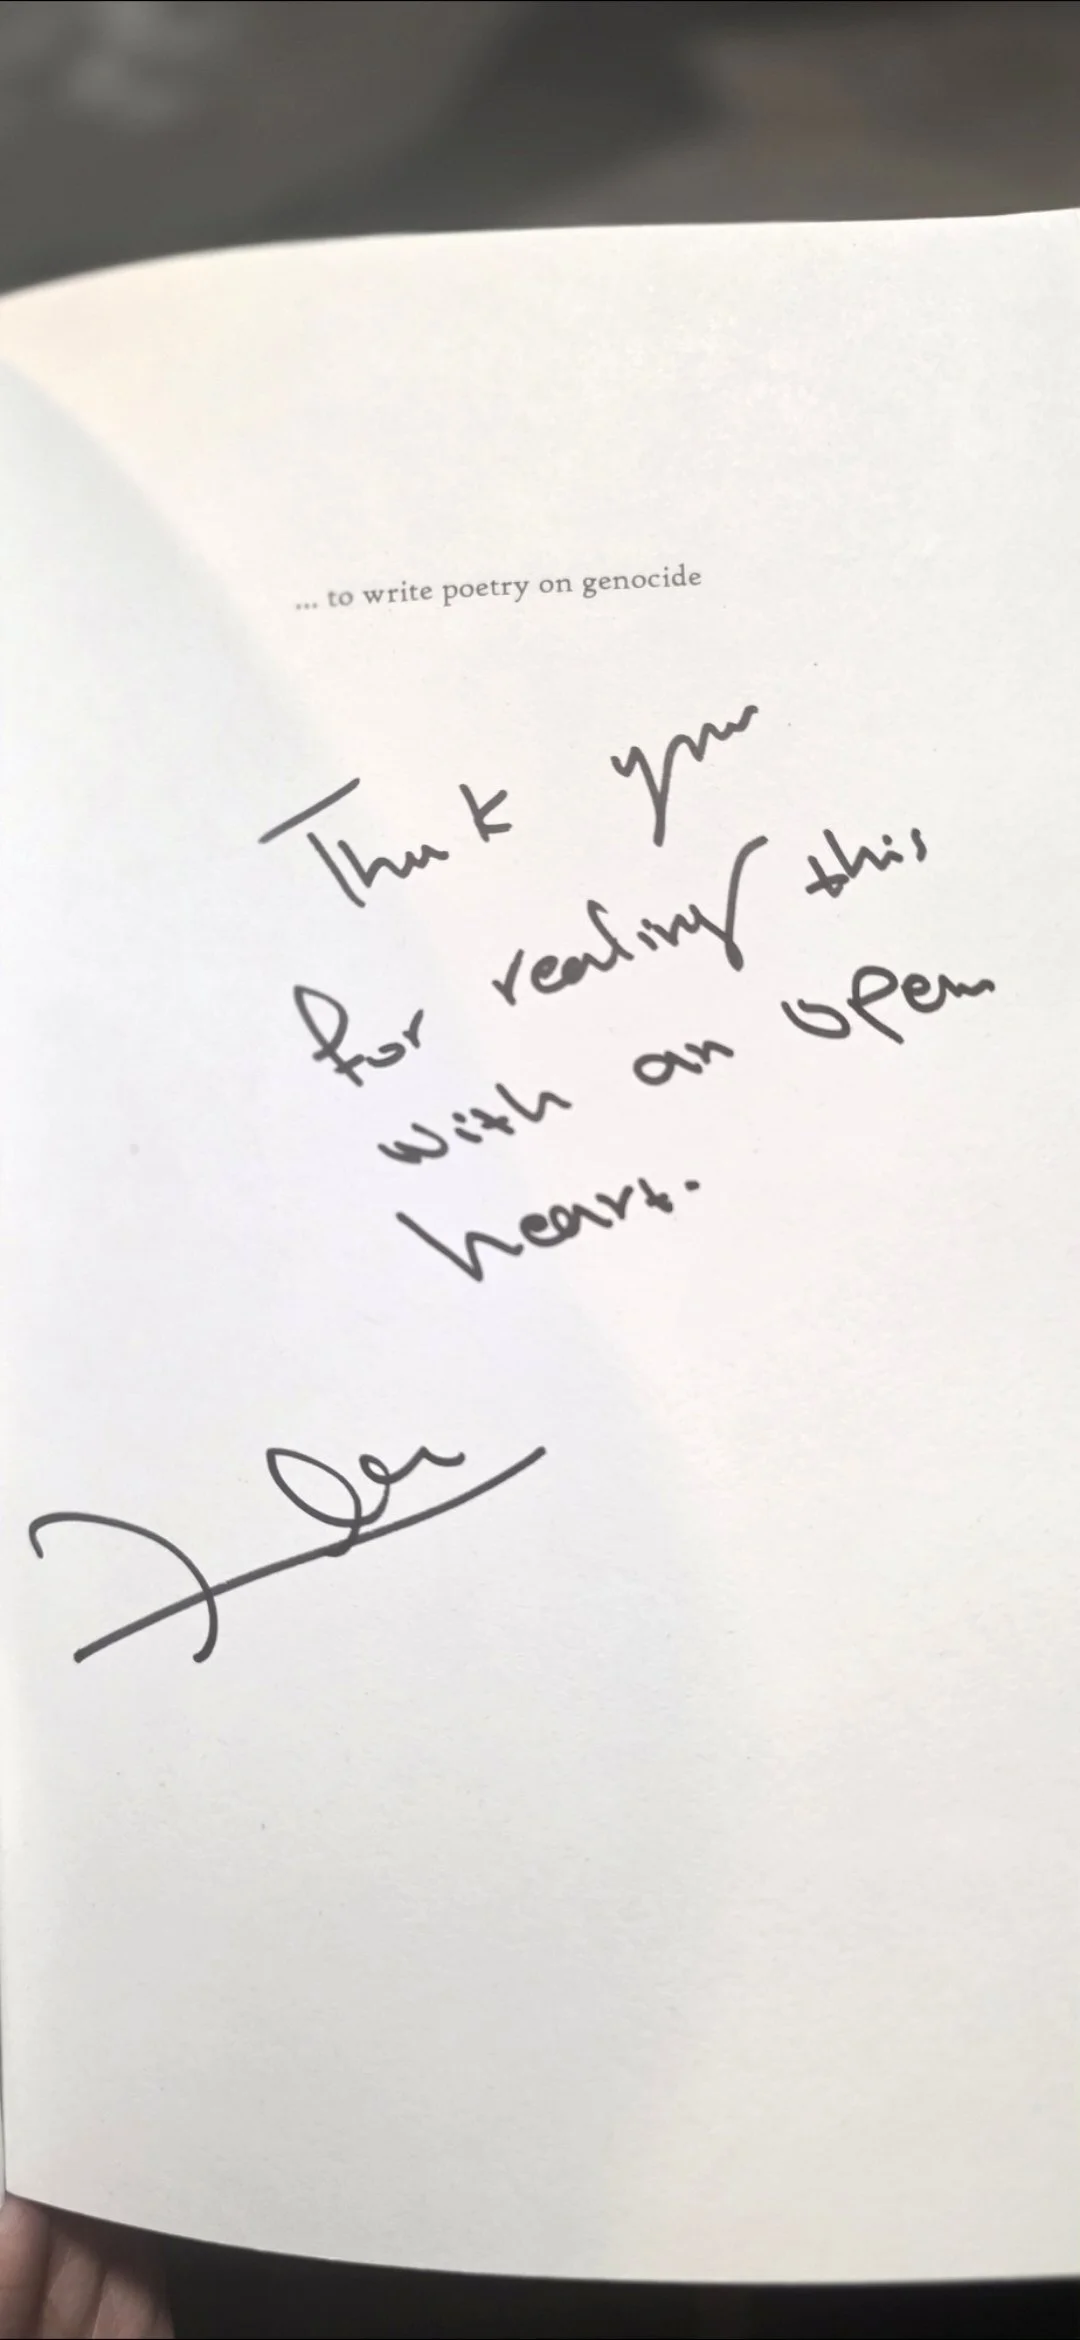 ... to write poetry on genocide
Thank you
for reading this
with an open
heart.